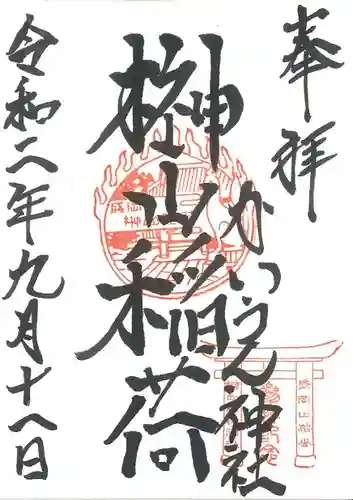 奉拝
榊山稲荷
かいうん神社
令和二年九月十八日